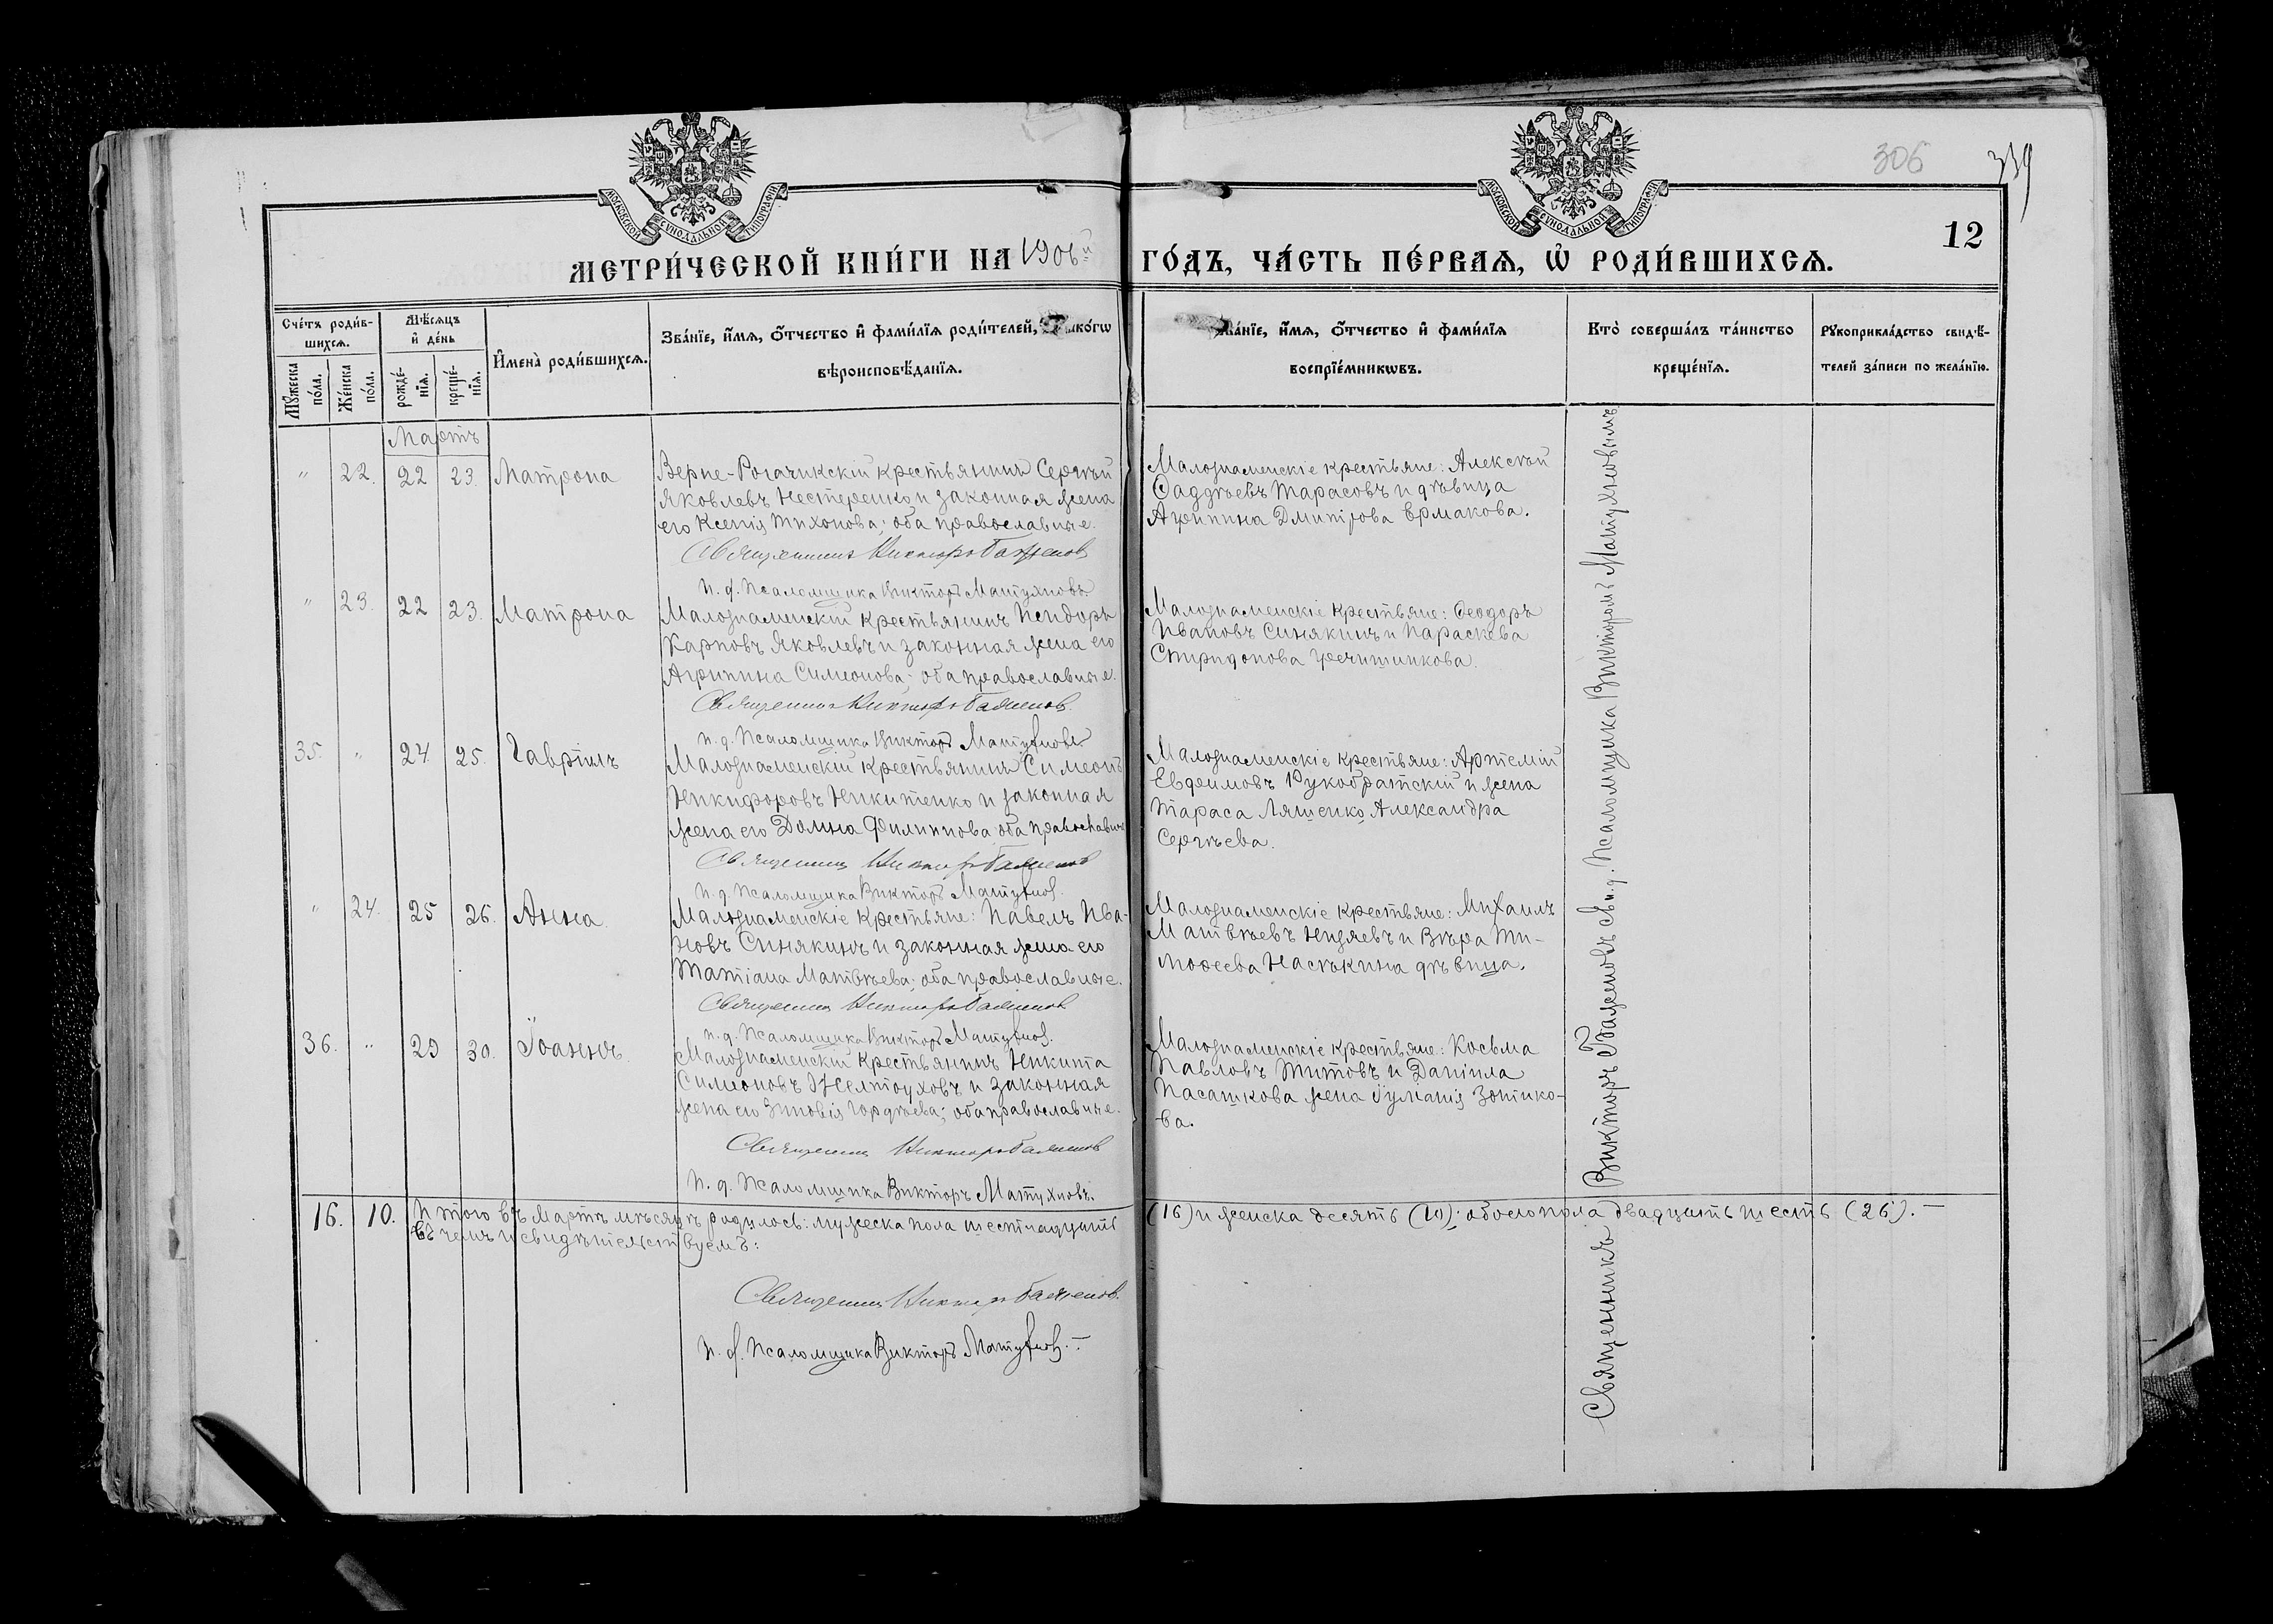 306
339
12
МОСКОВСКОЙ СУНОДАЛЬНОЙ ТИПОГРАФІИ
МОСКОВСКОЙ СУНОДАЛЬНОЙ ТИПОГРАФІИ
МЕТРИ́ЧЕСКОЙ КНИ́ГИ НА 1906й ГО́ДЪ, ЧА́СТЬ ПЕ́РВАѦ, Ѡ РОДИ́ВШИХСѦ.
Сче́тъ роди́в-
шихсѧ.
Мꙋжеска по́ла.
Же́нска по́ла.
Мѣ́сяцъ и де́нь
рожде́-
нїѧ.
креще́-
нїѧ.
Имена̀ роди́вшихсѧ.
Зва́нїе, и́мѧ, о́тчество и фами́лїѧ роди́телей, и како́гѡ
вѣроисповѣ́данїѧ.
Зва́нїе, и́мѧ, о́тчество и фами́лїѧ
воспрїе́мникѡвъ.
Кто̀ соверша́лъ та́инство
креще́нїѧ.
Рꙋкоприкла́дство свидѣ́-
телей за́писи по жела́нїю.
Мартъ
" 22. 22 23. Матрона
Верне-Рогачикскій крестьянинъ Сергѣй
Яковлевъ Нестеренко и законная жена
его Ксенія Тихонова; оба православные.
Священникъ Викторъ Баженов
И. д. Псаломщика Викторъ Матухновъ
Малознаменскіе крестьяне: Алексѣй
Фаддѣевъ Тарасовъ и дѣвица
Агрипина Дмитрова Ермакова.
" 23. 22 23. Матрона
Малознаменскій крестьянинъ Исидоръ
Карповъ Яковлевъ и законная жена его
Агрипина Симеонова; оба православные.
Священникъ Викторъ Баженов
И. д. Псаломщика Викторъ Матухновъ
Малознаменскіе крестьяне: Феодоръ
Ивановъ Синякинъ и Параскева
Спиридонова
35. " 24 25. Гавріилъ
Малознаменскій крестьянинъ Симеонъ
Никифоровъ Никитенко и законная
жена его Домна Филиппова оба православн
Священникъ Викторъ Баженов
И. д. Псаломщика Викторъ Матухнов.
Малознаменскіе крестьяне: Артемій
Евдѳимовъ Рукобратскій и жена
Тараса Ляшенко Александра
Сергѣева.
" 24. 25 26. Анна
Малознаменскіе крестьяне: Павелъ Ива-
новъ Синякинъ и законная жена его
Татіана Матвѣева; оба православные.
Священникъ Викторъ Баженов
И. д. Псаломщика Викторъ Матухнов.
Малознаменскіе крестьяне: Михаилъ
Матвѣевъ Низяевъ и Вѣра Ти-
моѳеева Насѣкина дѣвица.
36. " 29 30. Іоаннъ
Малознаменскій крестьянинъ Никита
Симеоновъ Желтоуховъ и законная
жена его Зиновія Гордѣева; оба православные.
Священникъ Викторъ Баженов
И. д. Псаломщика Викторъ Матухновъ.
Малознаменскіе крестьяне: Косьма
Павловъ Титовъ и Даніила
Пасашкова жена Іуліанія Зотико-
ва.
Священникъ Викторъ Баженовъ съ и. д. Псаломщика Викторомъ Матухновымъ
16. 10. Итого въ Мартѣ мѣсяцѣ родилось: мужеска пола шестнадцать (16) и женска десять (10); обоего пола двадцать шесть (26). –
въ чемъ и свидѣтельствуемъ:
Священникъ Викторъ Баженов.
И. д. Псаломщика Викторъ Матухнов. –